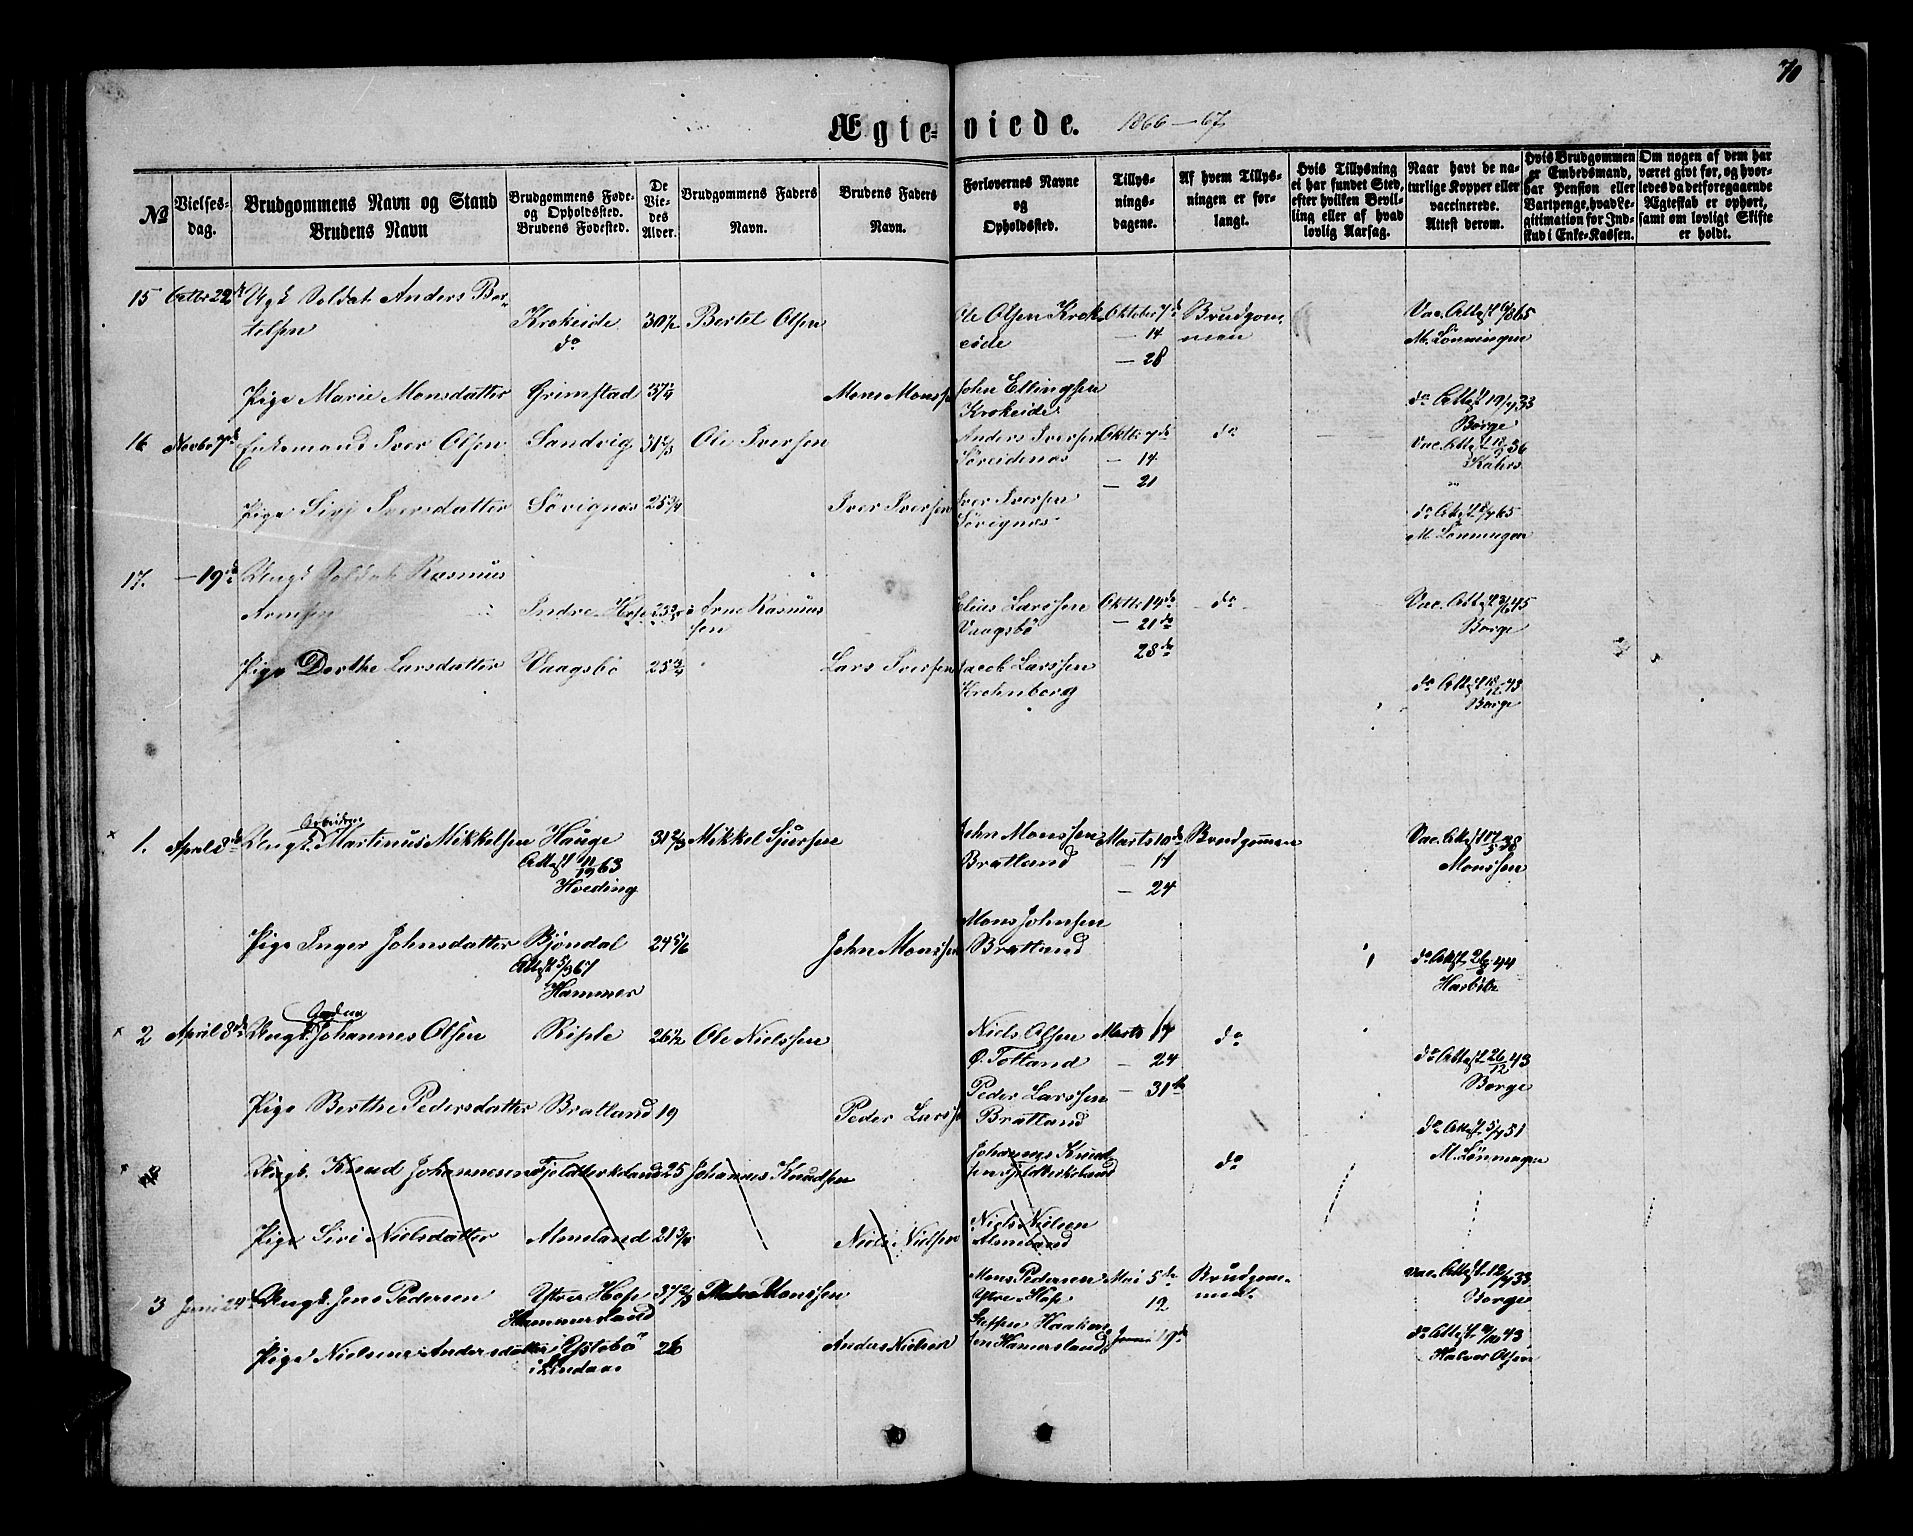 70
Ægte-viede. 1866-67
No
Vielses-dag.
Brudgommens Navn og Stand
Brudens Navn
Brudgommens Føde- og Opholdssted.
Brudens Fødested.
De Viedes Alder.
Brudgommens Faders Navn.
Brudens Faders Navn.
Forlovernes Navne og Opholdssted.
Tillysningsdagene.
Af hvem Tillysningen er forlangt.
Hvis Tillysning ei har fundet Sted, efter hvilken Bevilling eller af hvad lovlig Aarsag.
Naar havt de naturlige Kopper eller vaccinerede. Attest derom.
Hvis Brudgommen er Embedsmand, har Pension eller Vartpenge, hvad Legitimation for Indskud i Enke-Kassen.
Om nogen af dem har været givt før, og hvorledes da det foregaaende Ægteskab er ophørt, samt om lovligt Skifte er holdt.
15 Octbr 22 Ugk Soldat Anders Bertelsen Krokeide do 30 1/2 Bertel Olsen Ole Olsen Krokeide Oktober 7de - 14 - 28 Brudgommen Vac. Attest 65 M. Lønningen
Pige Marie Monsdatter Grimstad 37 1/4 Mons Monssen John Ellingsen Krokeide do Attest 19/7 33 Borge
16 Novbr 7de Enkemand Iver Olsen Sandvig 31 2/3 Ole Iversen Anders Iversen Søreidenæs Oktbr 7de - 14 - 21 do Vac. Attest 36 Kahrs
Pige Siri Iversdatter Sørignæs 25 3/4 Iver Iversen Iver Iversen Sørignæs do Attest 65 M. Lønningen
17. - 19de Ungk. Soldat Rasmus Arnesen Indre Hop 25 Arne Rasmussen Elias Larssen Vaagsbø Oktbr 14de - 21de 28de do Vac. Attest 45 Borge
Pige Dorthe Larsdatter Vaagsbø 25 3/4 Lars Iversen Jacob Larssen Krohnborg do Attest 18/12 43 Borge
1. April 8de Ungk. Arbeider Martinus Mikkelsen Hauge Attest 11/19 63 Hveding 31 2/3 Mikkel Sjursen John Monssen Bratland Marts 10de - 17 - 24 Brudgommen Vac. Attest 17/5 38 Monssen
Pige Inger Johnsdatter Bjøndal Attest 5/3 67 Hammer 24 5/6 John Monssen Mons Johnsen Bratland do Attest 26/8 44 Harbitz
2 April 8de Ungk. Johannes Olsen Riple 26 1/2 Ole Nielssen Niels Olsen Ø. Totland Marts 17 - 24 - 31te do do Attest 26/12 43 Borge
Pige Berthe Pedersdatter Bratland 19 Peder Larssen Peder Larssen Bratland do Attest 5/7 51 M. Lønningen
Ungk. Knud Johannesen 25 Johannes Knudsen Johannes Knudsen do
Pige Siri Nielsdatter Almeland 21 3/4 Niels Nielsen Niels Nielsen Almeland
3 Juni 24 Ungk. Jens Pedersen Ytre Hop Hammersland 37 2/3 Peder Monssen Mons Pedersen Ytre Hop Mai 5de 12 Brudgommen Vac. Attest 12/7 33 Borge
Pige Nielsine Andersdatter Rystebø i Lindaas 26 Anders Nielsen Steffen Haakonsen Hamersland Juni 19de do Attest 43 Halvor Olsen